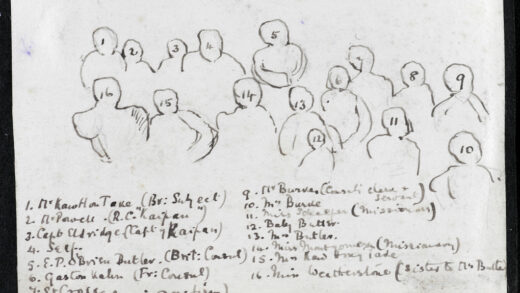 1 2 3 4 5 6 7 8 9
16 15 14 13 12 11 10
1. Mr Kaw Hon Take (Br: Subject)
2. Mr Powell (R.C. Kaifan)
3. Capt Eldridge (Capt of Kaifan)
4. Self
5. E.P. O'Brien Butler (Brit: Consul)
6. Gaston Kahn (Fr: Consul)
9. Mr Burde
10. Mrs Burde
11. Miss (Missionary)
12. Baby Butler
13. Mrs Butler
14. Miss Montgomery (Missionary)
15. Mrs Kaw Hong Take
16. Miss Weatherstone (Sister to Mrs Butler